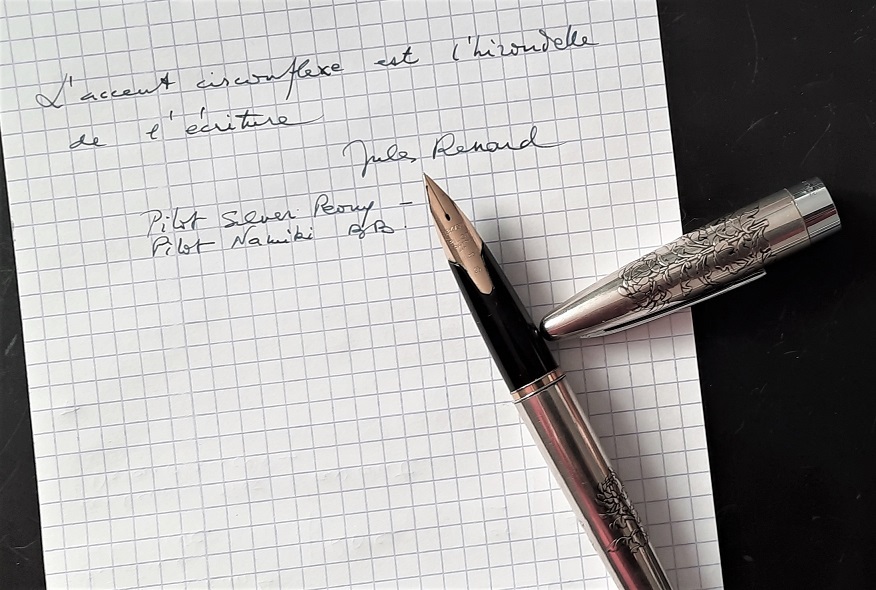 L'accent circonflexe est l'hirondelle
de l'écriture
Jules Renard
Pilot Silver Peony -
Pilot Namiki BB.